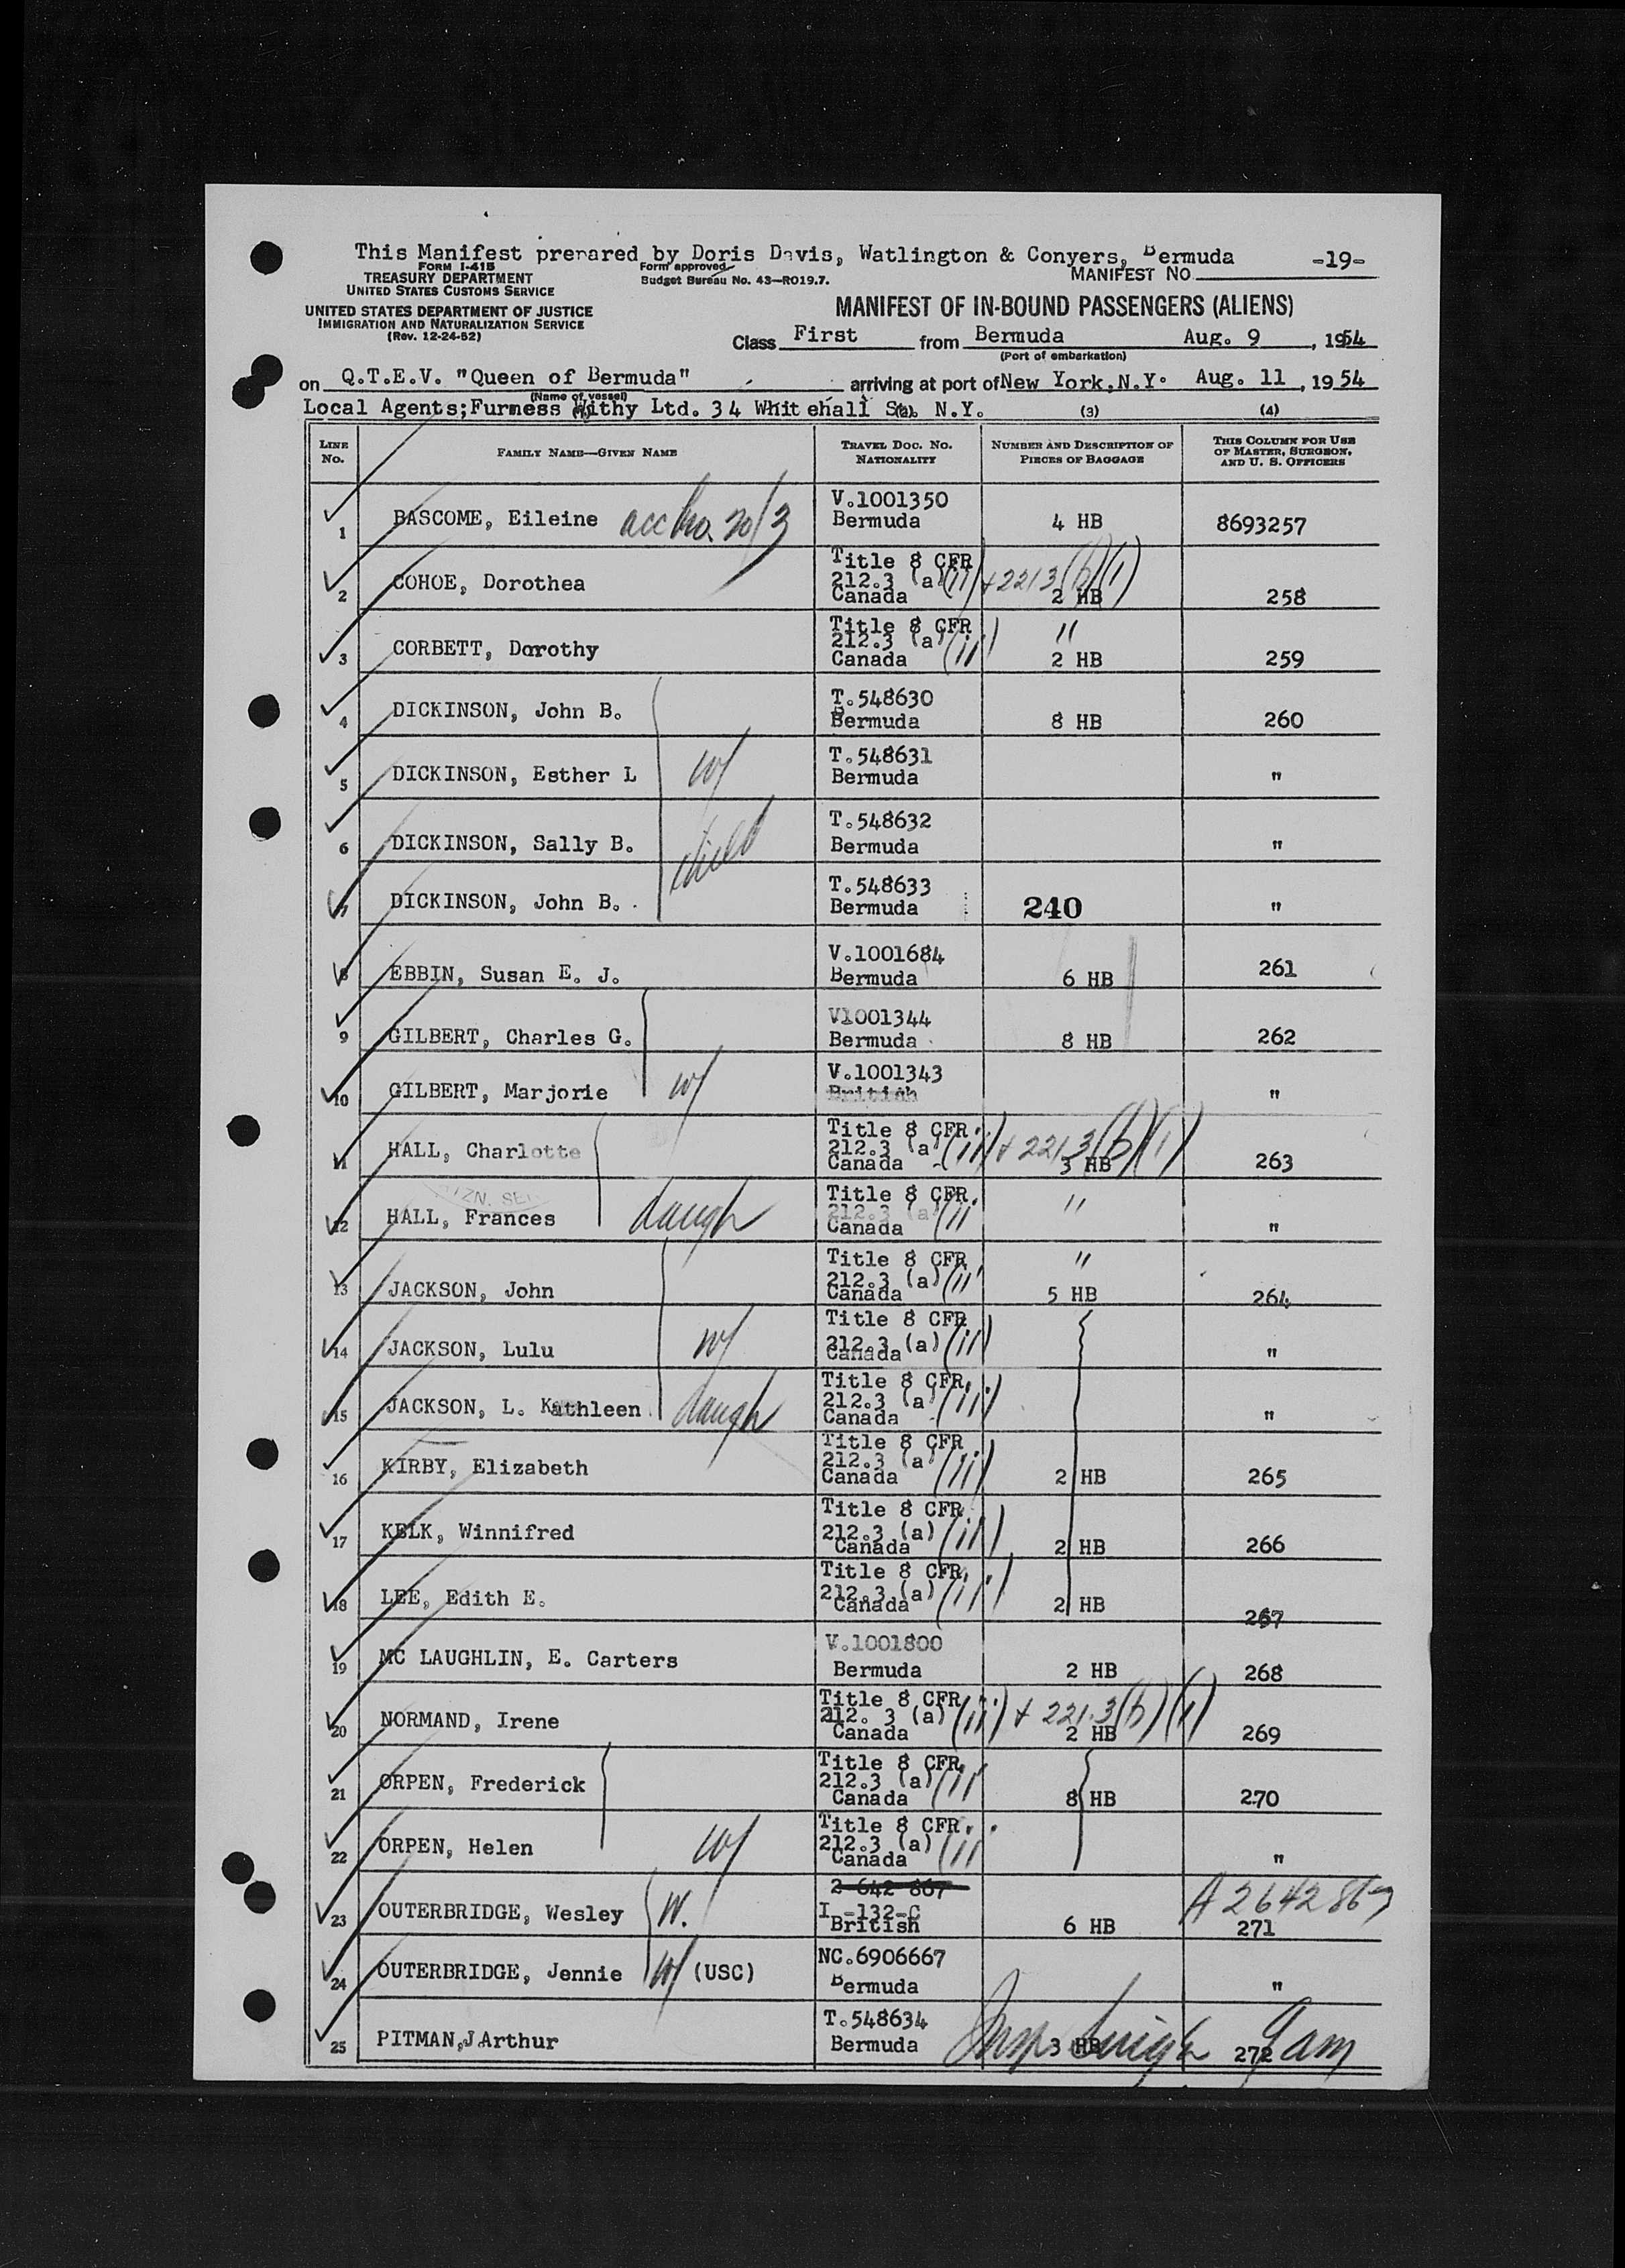 This Manifest prepared by Doris Davis, Watlington & Conyers, Bermuda -19-
FORM I-415 Form approved MANIFEST NO.
TREASURY DEPARTMENT Budget Bureau No. 43—RO19.7.
UNITED STATES CUSTOMS SERVICE
UNITED STATES DEPARTMENT OF JUSTICE MANIFEST OF IN-BOUND PASSENGERS (ALIENS)
IMMIGRATION AND NATURALIZATION SERVICE
(Rev. 12-24-52)
Class First from Bermuda Aug. 9, 1954
(Port of embarkation)
on Q.T.E.V. "Queen of Bermuda" arriving at port of New York, N.Y. Aug. 11, 1954
(Name of vessel)
Local Agents; Furness Withy Ltd. 34 Whitehall St. N.Y.
(1) (2) (3) (4)
LINE No. FAMILY NAME—GIVEN NAME TRAVEL DOC. No. NATIONALITY NUMBER AND DESCRIPTION OF PIECES OF BAGGAGE THIS COLUMN FOR USE OF MASTER, SURGEON, AND U. S. OFFICERS
V.1001350
1 BASCOME, Eileine 20/3 Bermuda 4 HB 8693257
Title 8 CFR
212.3 (a)(ii) + 221 3(b)(1)
2 COHOE, Dorothea Canada 2 HB 258
Title 8 CFR
212.3 (a)(ii) "
3 CORBETT, Dorothy Canada 2 HB 259
T.548630
4 DICKINSON, John B. Bermuda 8 HB 260
T.548631
5 DICKINSON, Esther L w/ Bermuda "
T.548632
6 DICKINSON, Sally B. child Bermuda "
T.548633
7 DICKINSON, John B. Bermuda 240 "
V.1001684
8 EBBIN, Susan E. J. Bermuda 6 HB 261
V1001344
9 GILBERT, Charles G. Bermuda 8 HB 262
V.1001343
10 GILBERT, Marjorie w/ British "
Title 8 CFR
212.3 (a)(ii) + 221 3(b)(1)
11 HALL, Charlotte Canada 3 HB 263
Title 8 CFR
212.3 (a)(ii "
12 HALL, Frances daugh Canada "
Title 8 CFR
212.3 (a)(ii "
13 JACKSON, John Canada 5 HB 264
Title 8 CFR
212.3 (a)(ii)
14 JACKSON, Lulu w/ Canada "
Title 8 CFR
212.3 (a)(ii)
15 JACKSON, L. Kathleen daugh Canada "
Title 8 CFR
212.3 (a)(ii)
16 KIRBY, Elizabeth Canada 2 HB 265
Title 8 CFR
212.3 (a)(ii)
17 KELK, Winnifred Canada 2 HB 266
Title 8 CFR
212.3 (a)(ii)
18 LEE, Edith E. Canada 2 HB 267
V.1001800
19 MC LAUGHLIN, E. Carters Bermuda 2 HB 268
Title 8 CFR
212. 3 (a)(ii) + 221.3(b)(1)
20 NORMAND, Irene Canada 2 HB 269
Title 8 CFR
212.3 (a)(ii
21 ORPEN, Frederick Canada 8 HB 270
Title 8 CFR
212.3 (a)(ii
22 ORPEN, Helen w/ Canada "
2 642 867 A2642867
I -132-C
23 OUTERBRIDGE, Wesley W. British 6 HB 271
NC.6906667
24 OUTERBRIDGE, Jennie w/ (USC) Bermuda "
T.548634
25 PITMAN, J.Arthur Bermuda 3 HB 272